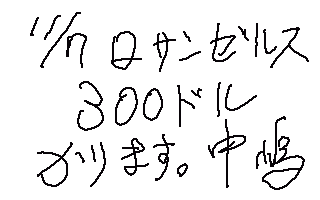 11/7 ロサンゼルス
300ドル
かります。中嶋